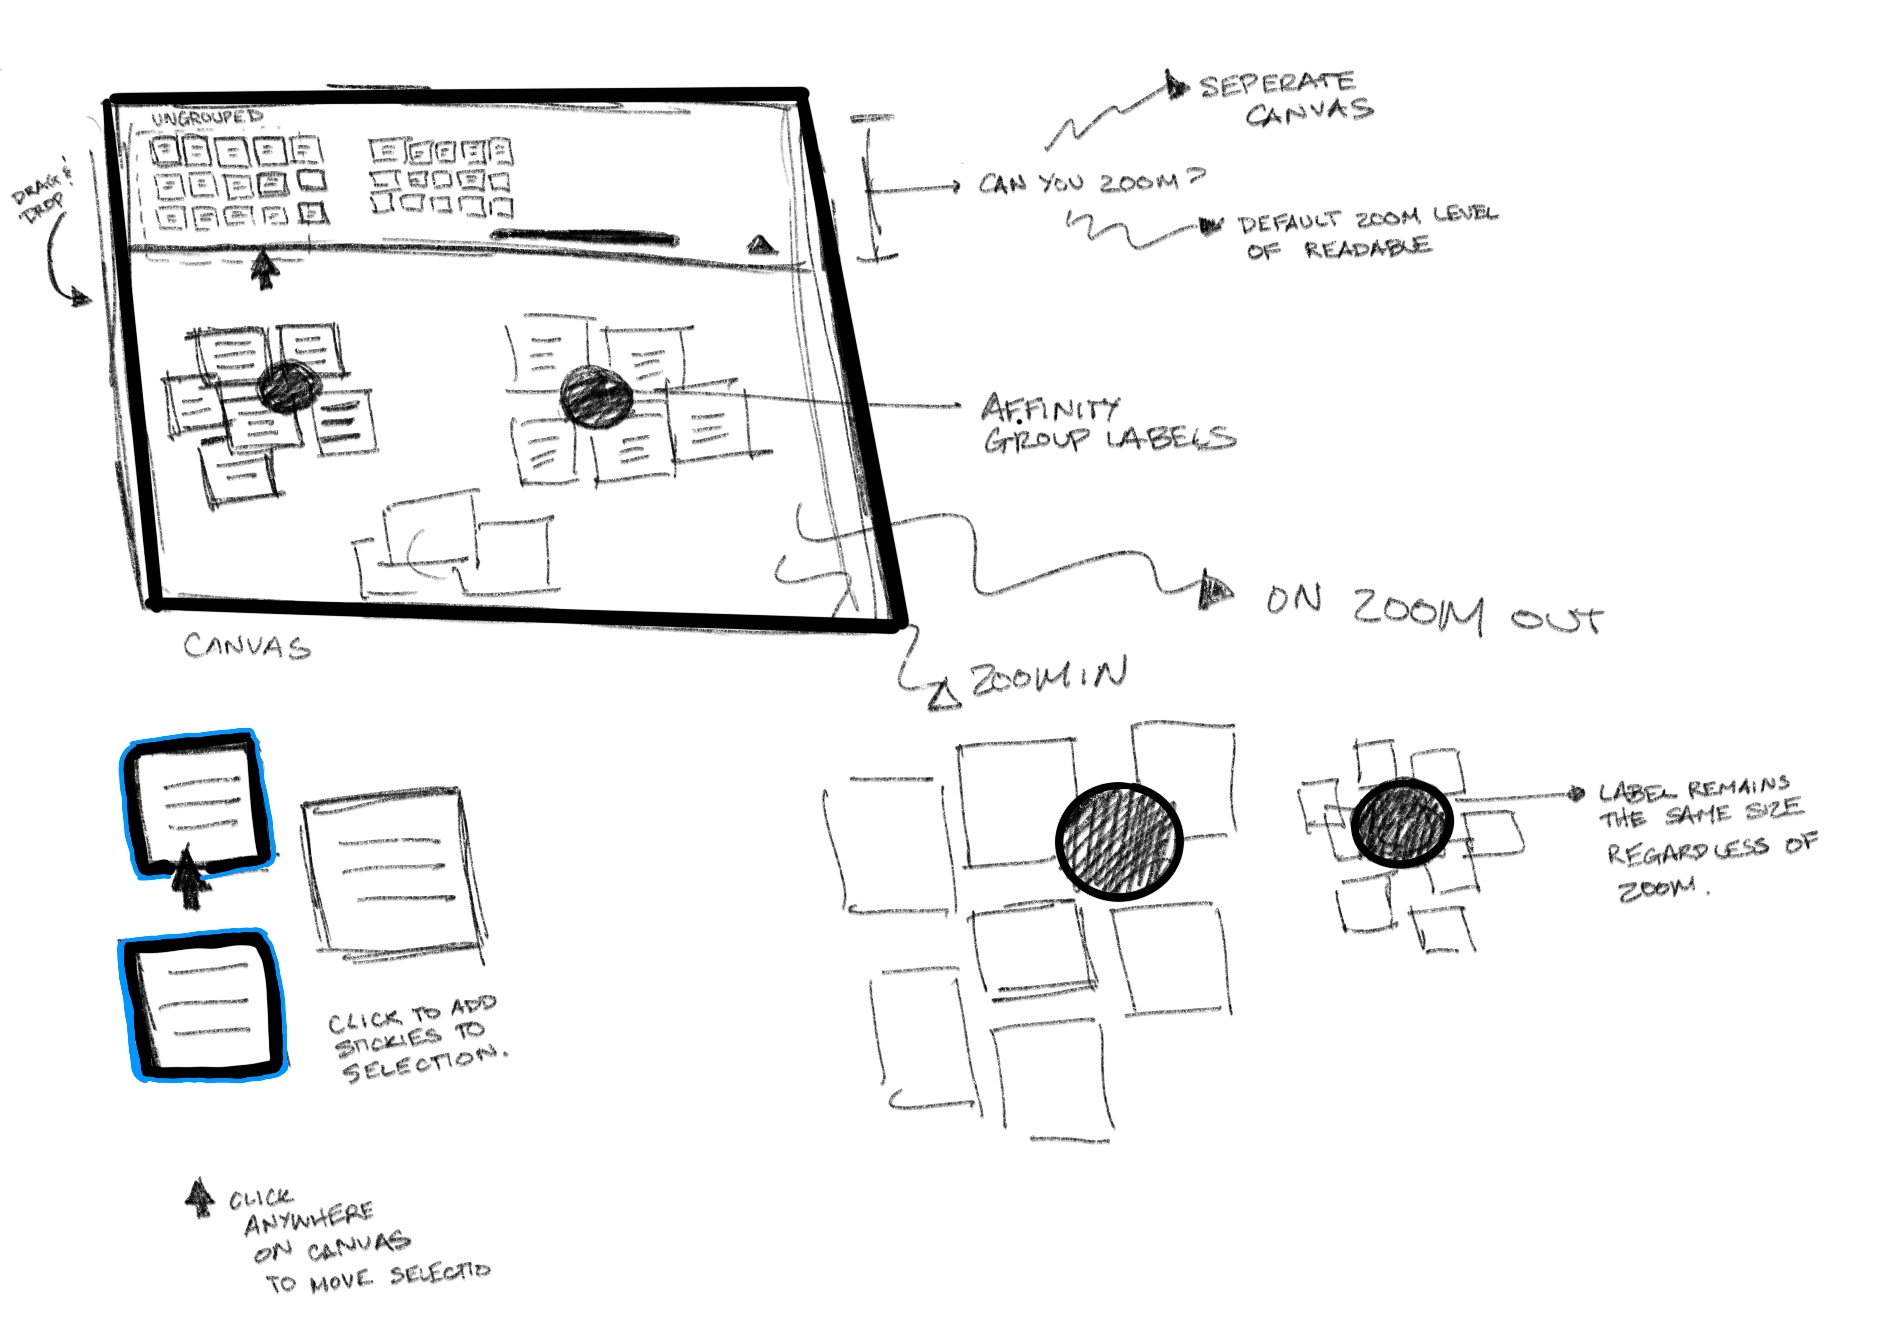 UNGROUPED
DRAG &
DROP
SEPERATE
CANVAS
CAN YOU ZOOM?
DEFAULT ZOOM LEVEL
OF READABLE
AFFINITY
GROUP LABELS
ON ZOOM OUT
CANVAS
ZOOM IN
LABEL REMAINS
THE SAME SIZE
REGARDLESS OF
ZOOM.
CLICK TO ADD
STICKIES TO
SELECTION.
CLICK
ANYWHERE
ON CANVAS
TO MOVE SELECTIO